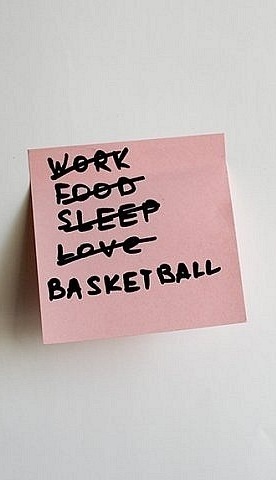 WORK
FOOD
SLEEP
LOVE
BASKETBALL